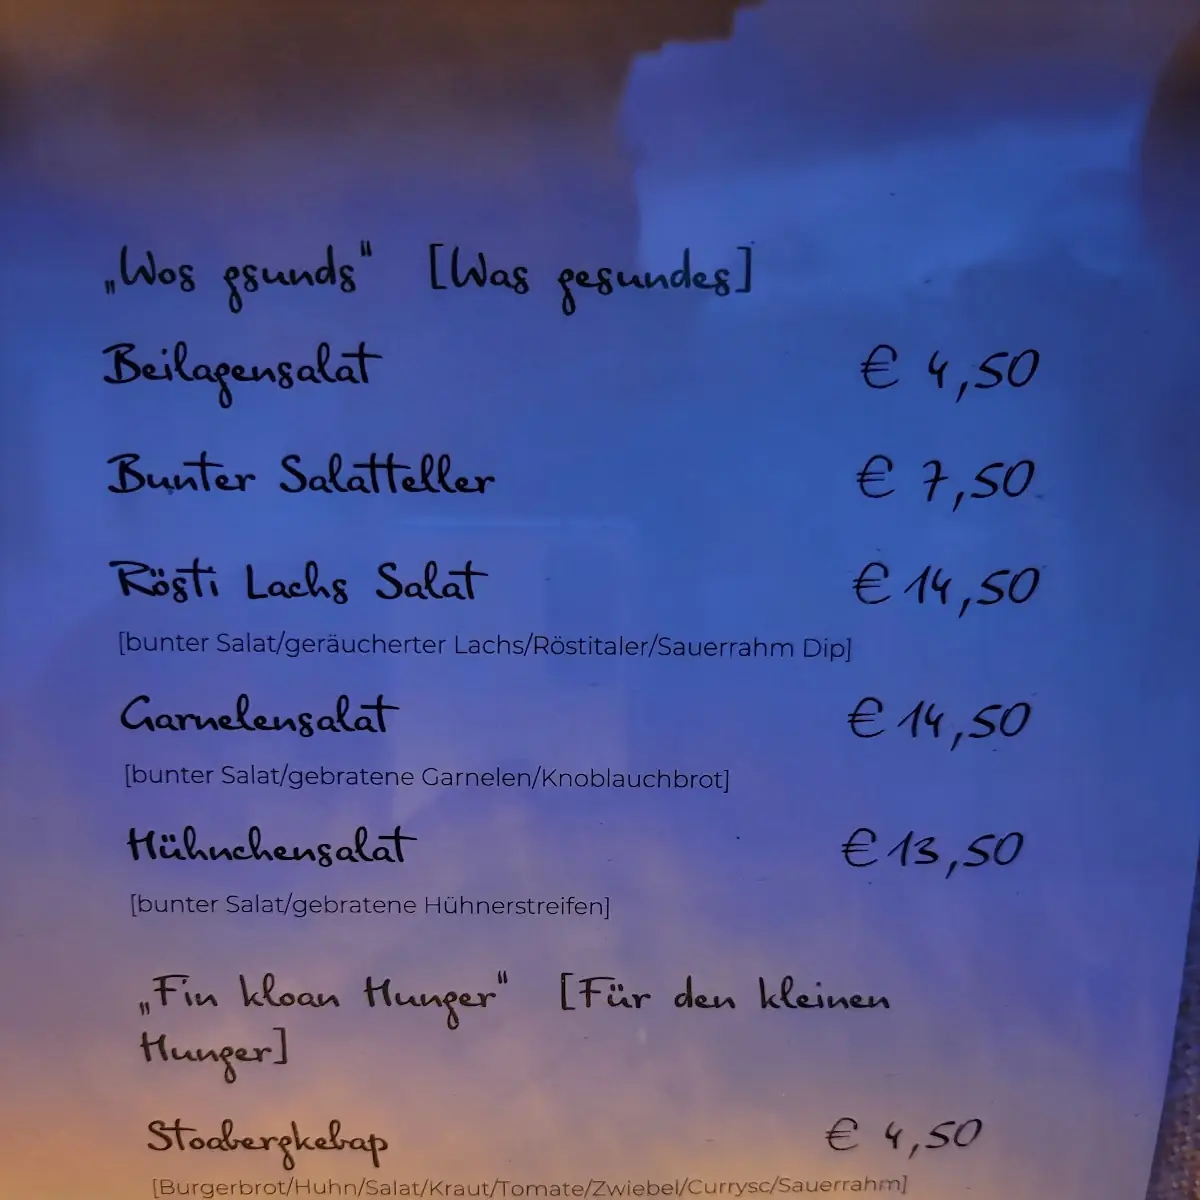 „Wos gsunds“ [Was gesundes]
Beilagensalat € 4,50
Bunter Salatteller € 7,50
Rösti Lachs Salat € 14,50
[bunter Salat/geräucherter Lachs/Röstitaler/Sauerrahm Dip]
Garnelensalat € 14,50
[bunter Salat/gebratene Garnelen/Knoblauchbrot]
Hühnchensalat € 13,50
[bunter Salat/gebratene Hühnerstreifen]
„Fin kloan Hunger“ [Für den kleinen
Hunger]
Stoabergkebap € 4,50
[Burgerbrot/Huhn/Salat/Kraut/Tomate/Zwiebel/Currysc/Sauerrahm]